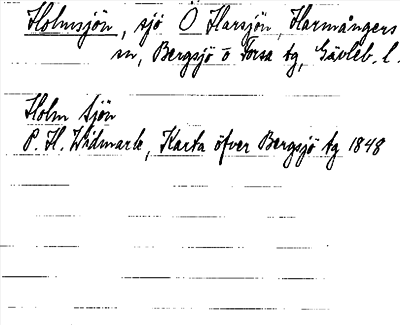 Holmsjön, sjö Ö Harsjön, Harmångers
sn, Bergsjö o Forsa tg, Gävleb. l.
Holm sjön
P. H. Widmark, Karta öfver Bergsjö tg 1848